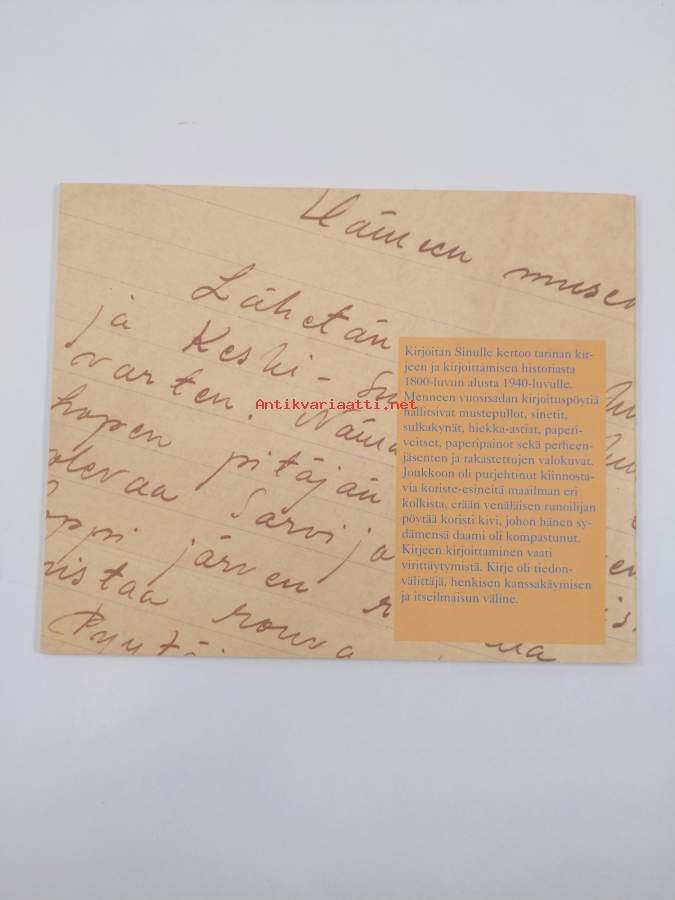 Hämeen museo
Lähetän
ja Keski-
varten.
pitäjän
olevaa Sarvija
järven
rouva
Antikvariaatti.net
Kirjoitan Sinulle kertoo tarinan kir-
jeen ja kirjoittamisen historiasta
1800-luvun alusta 1940-luvulle.
Menneen vuosisadan kirjoituspöytiä
hallitsivat mustepullot, sinetit,
sulkakynät, hiekka-astiat, paperi-
veitset, paperipainot sekä perheen-
jäsenten ja rakastettujen valokuvat.
Joukkoon oli purjehtinut kiinnosta-
via koriste-esineitä maailman eri
kolkista, erään venäläisen runoilijan
pöytää koristi kivi, johon hänen sy-
dämensä daami oli kompastunut.
Kirjeen kirjoittaminen vaati
virittäytymistä. Kirje oli tiedon-
välittäjä, henkisen kanssakäymisen
ja itseilmaisun väline.